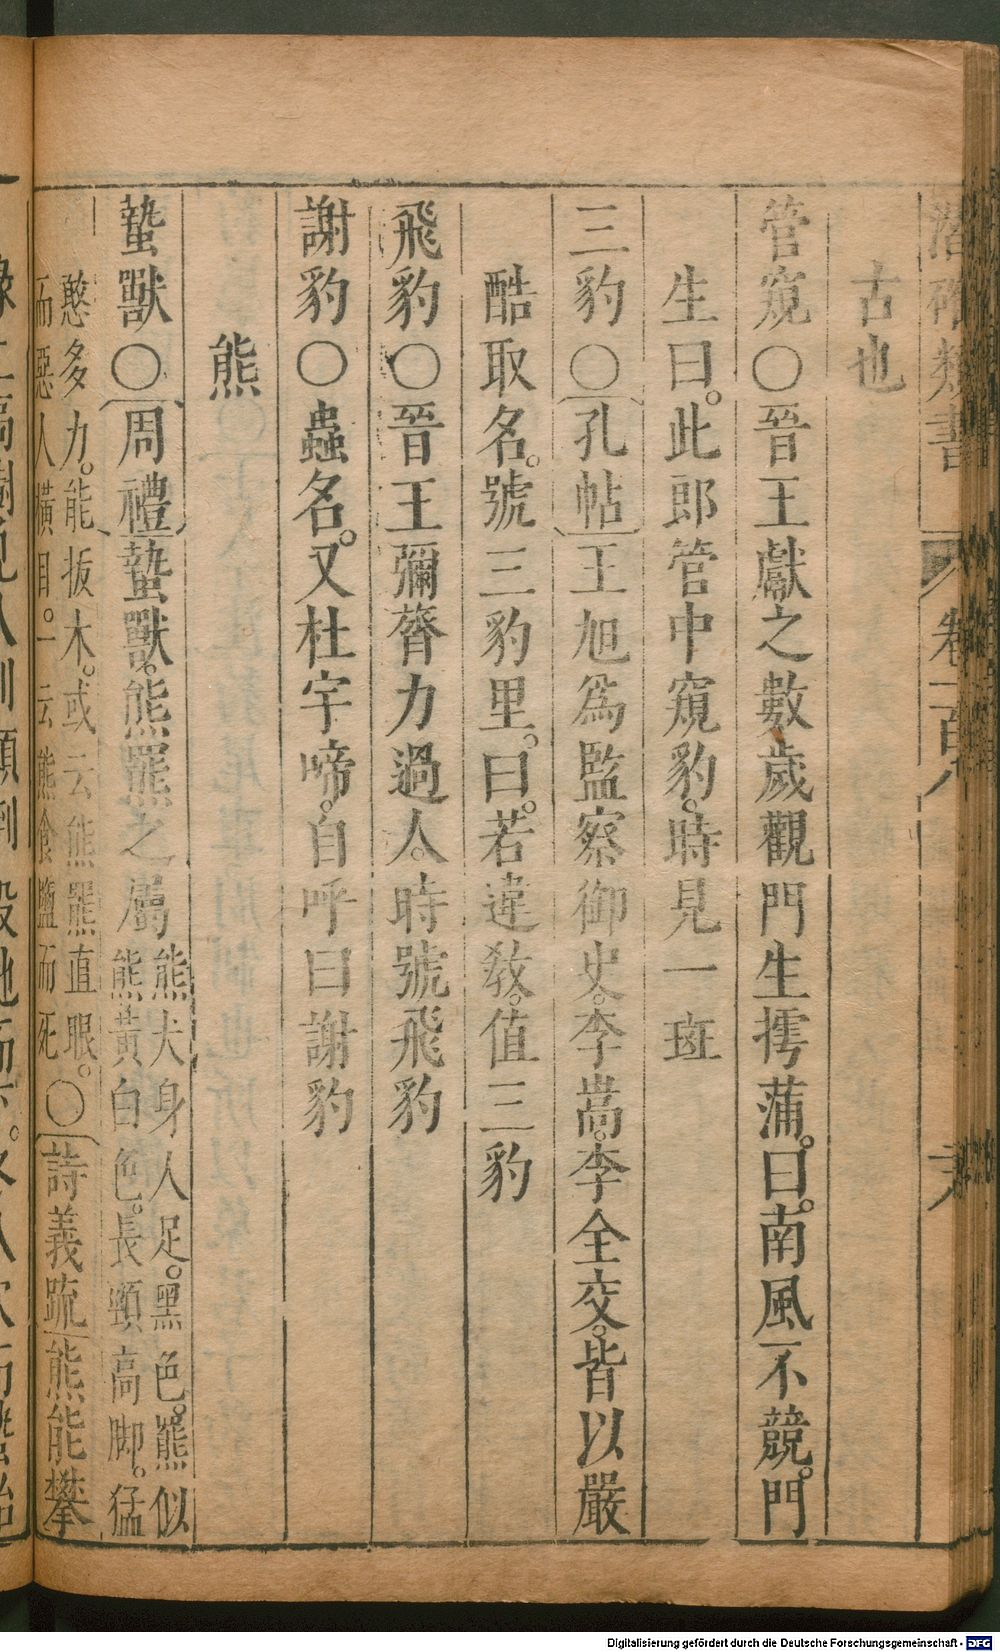 潛確類書 卷一百八
古也
管窺〇晉王獻之數歲觀門生摴蒲。曰。南風不競。門
生曰。此郎管中窺豹。時見一斑
三豹〇孔帖王旭爲監察御史。李嵩。李全交。皆以嚴
酷取名。號三豹里。曰。若違敎。值三豹
飛豹〇晉王彌膂力過人。時號飛豹
謝豹〇蟲名。又杜宇啼。自呼曰謝豹
熊
蟄獸〇周禮蟄獸。熊羆之屬
熊犬身人足。黑色。羆似
熊黃白色。長頸高脚。猛
憨多力。能拔木。或云熊羆直眼。
而惡人橫目。一云熊食鹽而死
〇詩義疏熊能攀
Digitalisierung gefördert durch die Deutsche Forschungsgemeinschaft - DFG